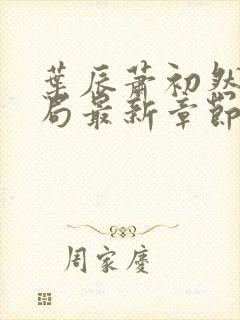 葉辰蕭初然
局最新章節
周家慶